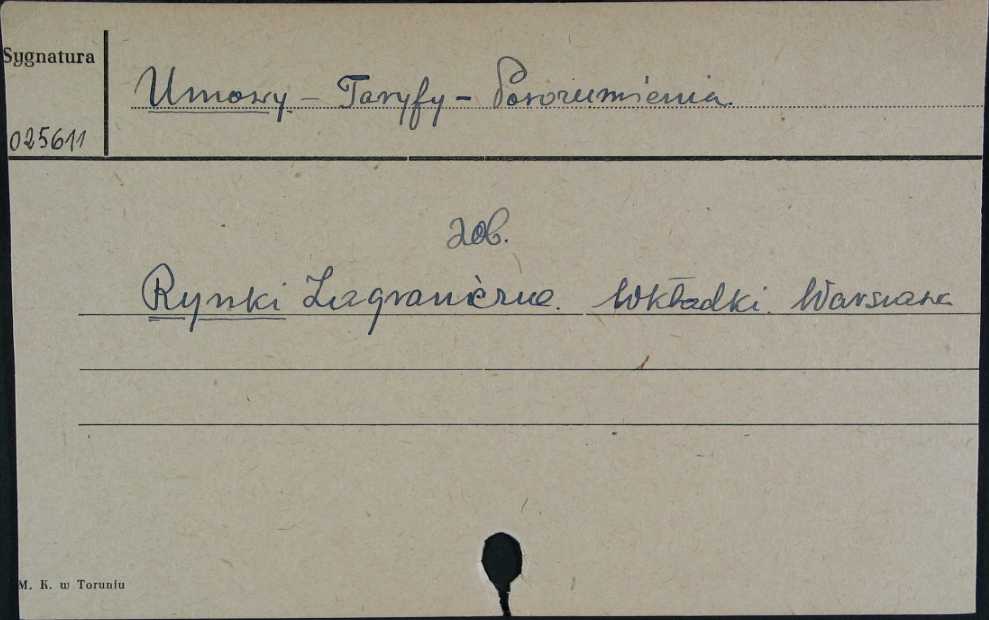 Sygnatura
Umowy - Taryfy - Porozumienia.
025611
zob.
Rynki Zagraniczne. Wkładki. Warszawa
M. K. w Toruniu